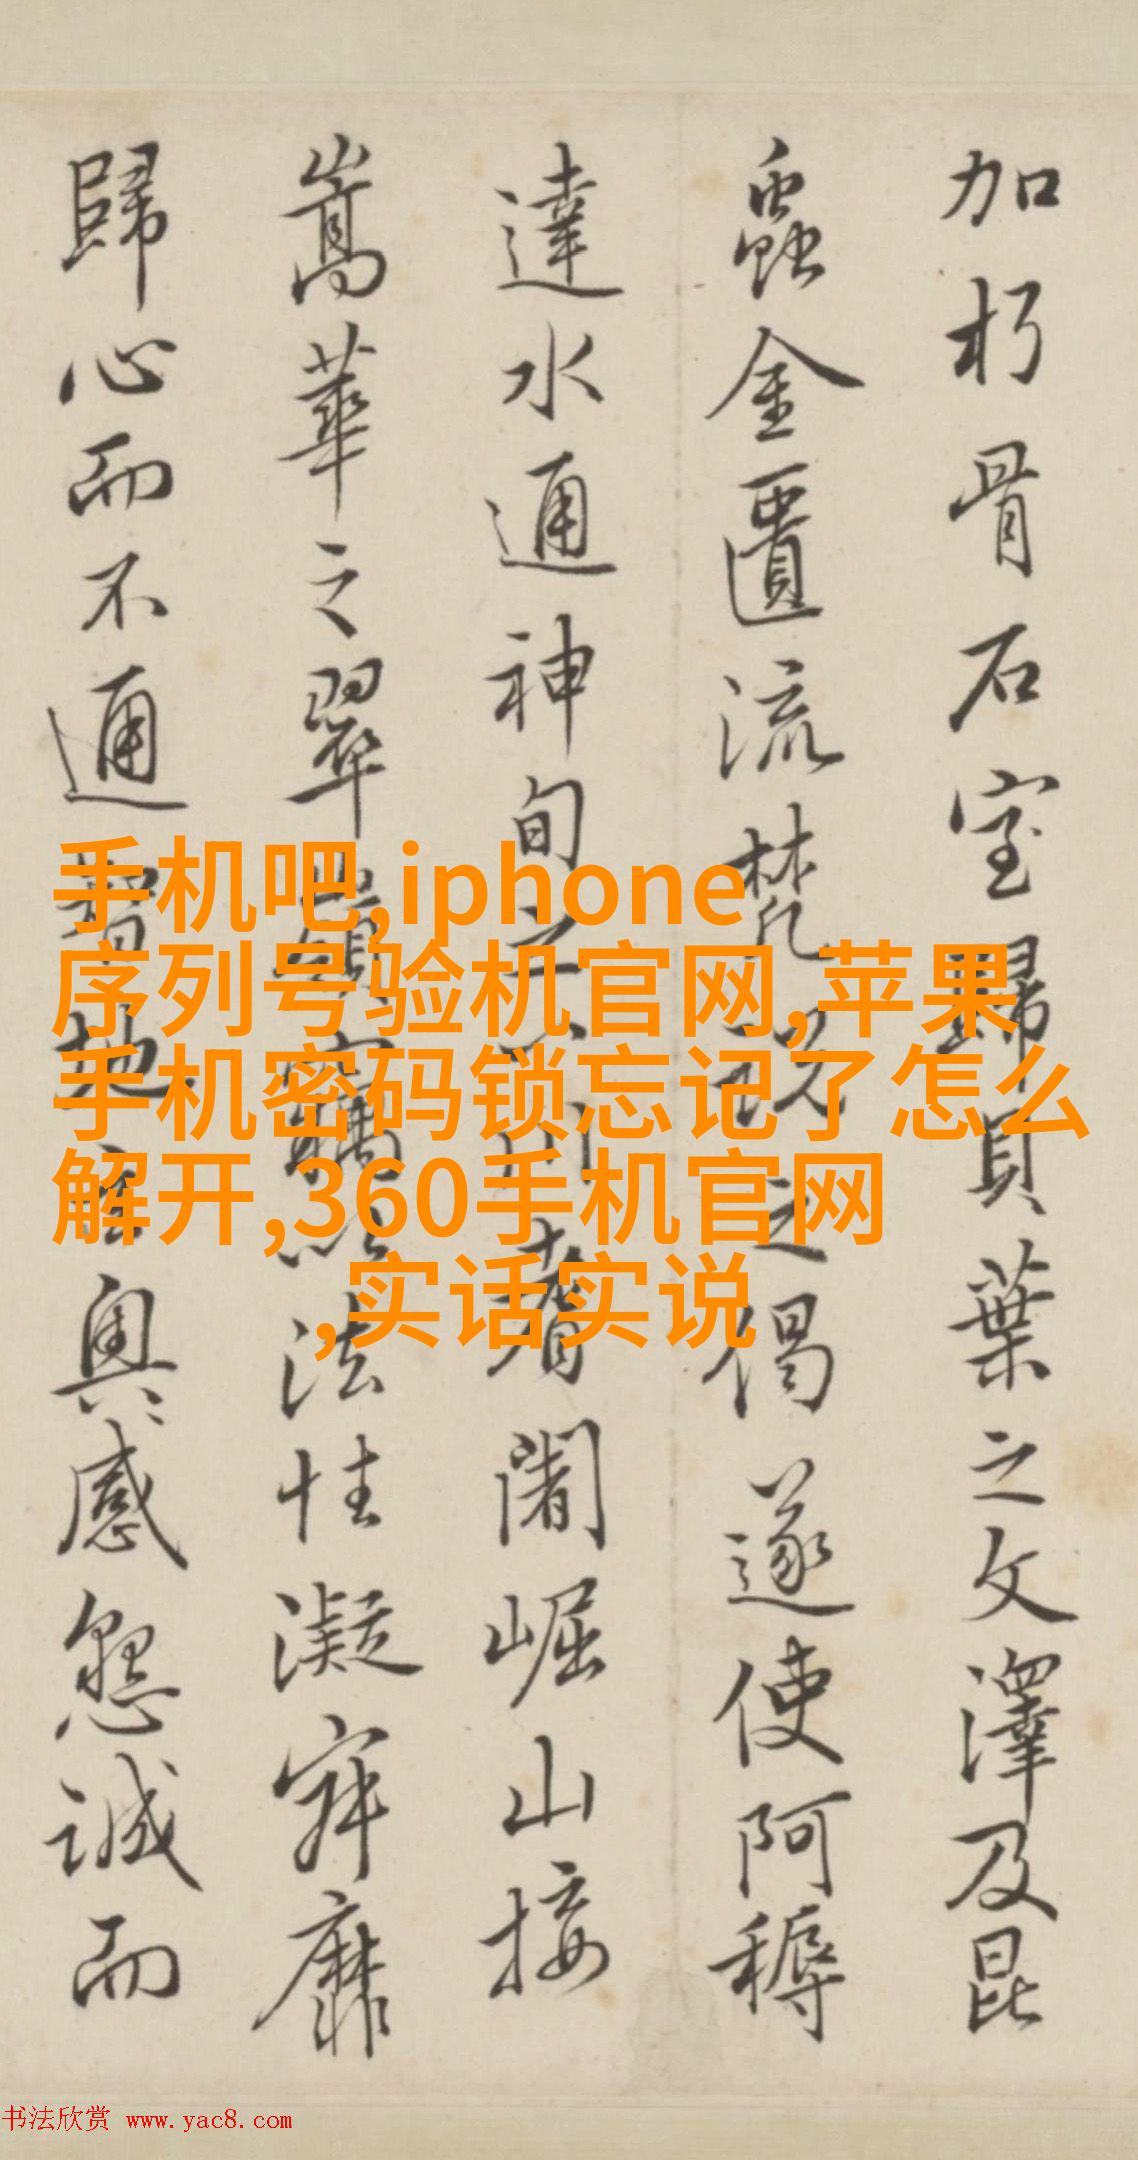 加朽骨石室歸貝葉之文澤及昆
蟲金匱流梵說之偈遂使阿耨
達水通神甸之八川耆闍崛山接
嵩華之翠嶺竊以法性凝寂靡
歸心而不通智地玄奧感懇誠而
手机吧,iphone
序列号验机官网,苹果
手机密码锁忘记了怎么
解开,360手机官网
,实话实说
书法欣赏 www.yac8.com